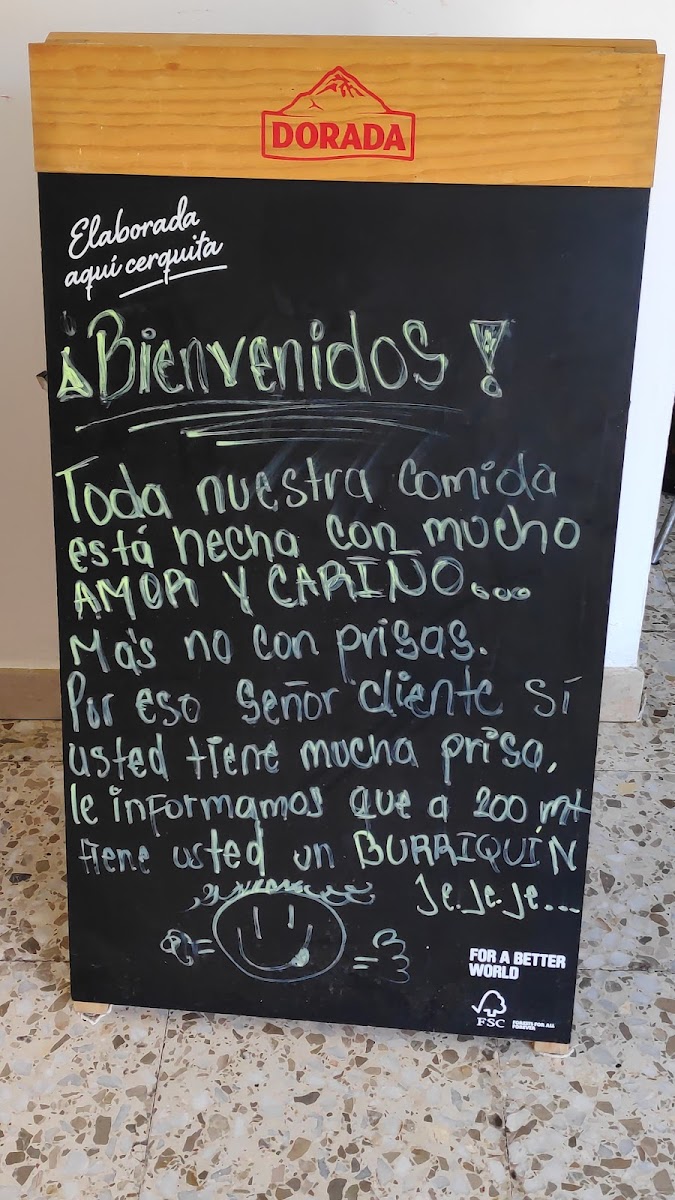 DORADA
Elaborada
aquí cerquita
¡Bienvenidos!
Toda nuestra comida
está hecha con mucho
AMOR Y CARIÑO...
Más no con prisas.
Por eso señor cliente sí
usted tiene mucha prisa,
le informamos que a 200 mt
tiene usted un BURRIQUÍN
Je.Je.je...
FOR A BETTER
WORLD
FSC
FORESTS FOR ALL
FOREVER